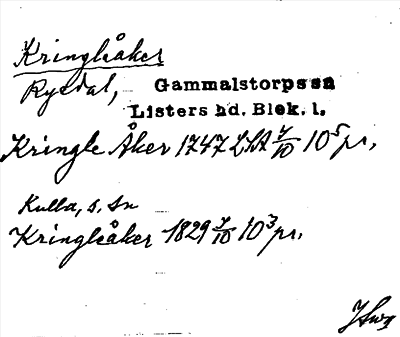 Kringleåker
Rysdal, Gammalstorps sn
Listers hd. Blek. l.
Kringle Åker 1747 LSA 7/10 10⁵ pr.
Kulla, s. sn
Kringleåker 1829 7/10 10³ pr.